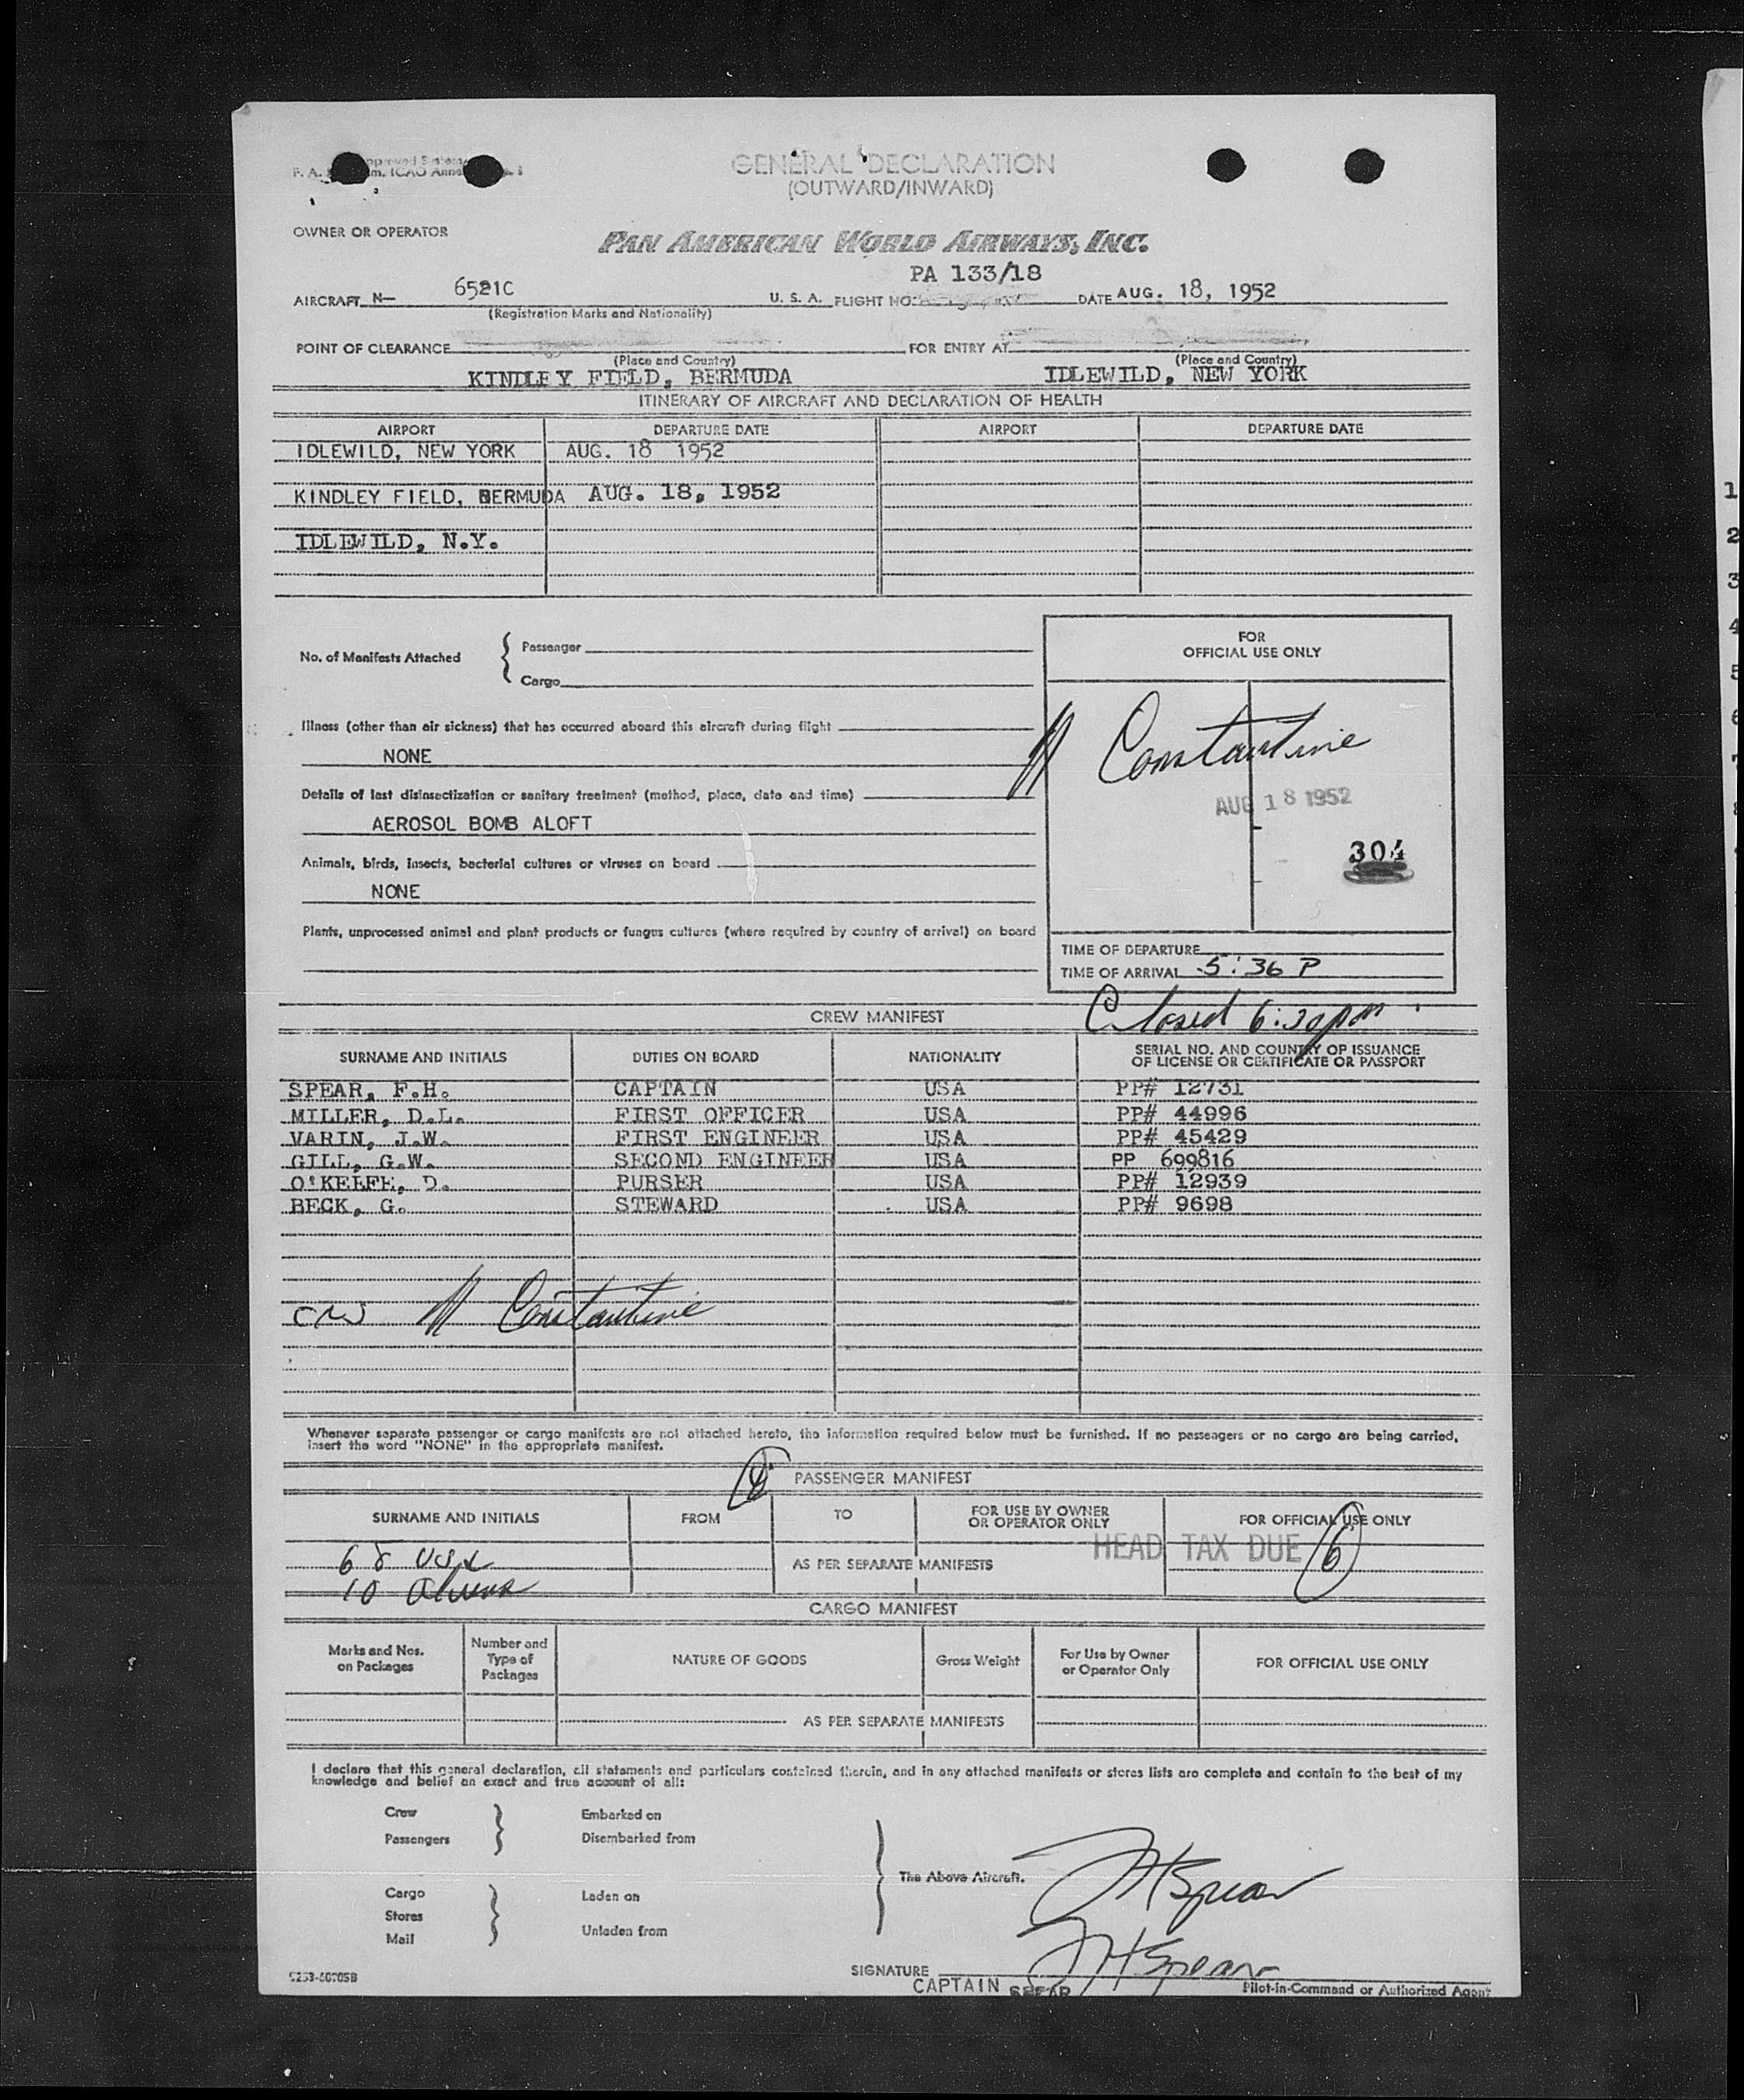 GENERAL DECLARATION
(OUTWARD/INWARD)
OWNER OR OPERATOR
PAN AMERICAN WORLD AIRWAYS, INC.
PA 133/18
AIRCRAFT N— 6521C U. S. A. FLIGHT NO. DATE AUG. 18, 1952
(Registration Marks and Nationality)
POINT OF CLEARANCE FOR ENTRY AT
(Place and Country) (Place and Country)
KINDLEY FIELD, BERMUDA IDLEWILD, NEW YORK
ITINERARY OF AIRCRAFT AND DECLARATION OF HEALTH
AIRPORT DEPARTURE DATE AIRPORT DEPARTURE DATE
IDLEWILD, NEW YORK AUG. 18 1952
KINDLEY FIELD, BERMUDA AUG. 18, 1952
IDLEWILD, N.Y.
No. of Manifests Attached { Passenger
Cargo
FOR
OFFICIAL USE ONLY
Illness (other than air sickness) that has occurred aboard this aircraft during flight
NONE
Constantine
Details of last disinsectization or sanitary treatment (method, place, date and time)
AUG 18 1952
AEROSOL BOMB ALOFT
304
Animals, birds, insects, bacterial cultures or viruses on board
NONE
Plants, unprocessed animal and plant products or fungus cultures (where required by country of arrival) on board
TIME OF DEPARTURE
TIME OF ARRIVAL 5:36 P
Closed 6:30 pm
CREW MANIFEST
SURNAME AND INITIALS DUTIES ON BOARD NATIONALITY SERIAL NO. AND COUNTRY OF ISSUANCE
OF LICENSE OR CERTIFICATE OR PASSPORT
SPEAR, F.H. CAPTAIN USA PP# 12731
MILLER, D.L. FIRST OFFICER USA PP# 44996
VARIN, J.W. FIRST ENGINEER USA PP# 45429
GILL, G.W. SECOND ENGINEER USA PP 699816
O'KEEFE, D. PURSER USA PP# 12939
BECK, G. STEWARD USA PP# 9698
Constantine
Whenever separate passenger or cargo manifests are not attached hereto, the information required below must be furnished. If no passengers or no cargo are being carried,
insert the word "NONE" in the appropriate manifest.
PASSENGER MANIFEST
SURNAME AND INITIALS FROM TO FOR USE BY OWNER
OR OPERATOR ONLY FOR OFFICIAL USE ONLY
HEAD TAX DUE 6
68 USC
AS PER SEPARATE MANIFESTS
10 Aliens
CARGO MANIFEST
Marks and Nos.
on Packages
Number and
Type of
Packages
NATURE OF GOODS
Gross Weight
For Use by Owner
or Operator Only
FOR OFFICIAL USE ONLY
AS PER SEPARATE MANIFESTS
I declare that this general declaration, all statements and particulars contained therein, and in any attached manifests or stores lists are complete and contain to the best of my
knowledge and belief an exact and true account of all:
Crew Embarked on
Passengers Disembarked from
The Above Aircraft.
FHSpear
Cargo Laden on
Stores
Mail Unladen from
SIGNATURE FHSpear
CAPTAIN SPEAR Pilot-in-Command or Authorized Agent
1
2
3
4
5
6